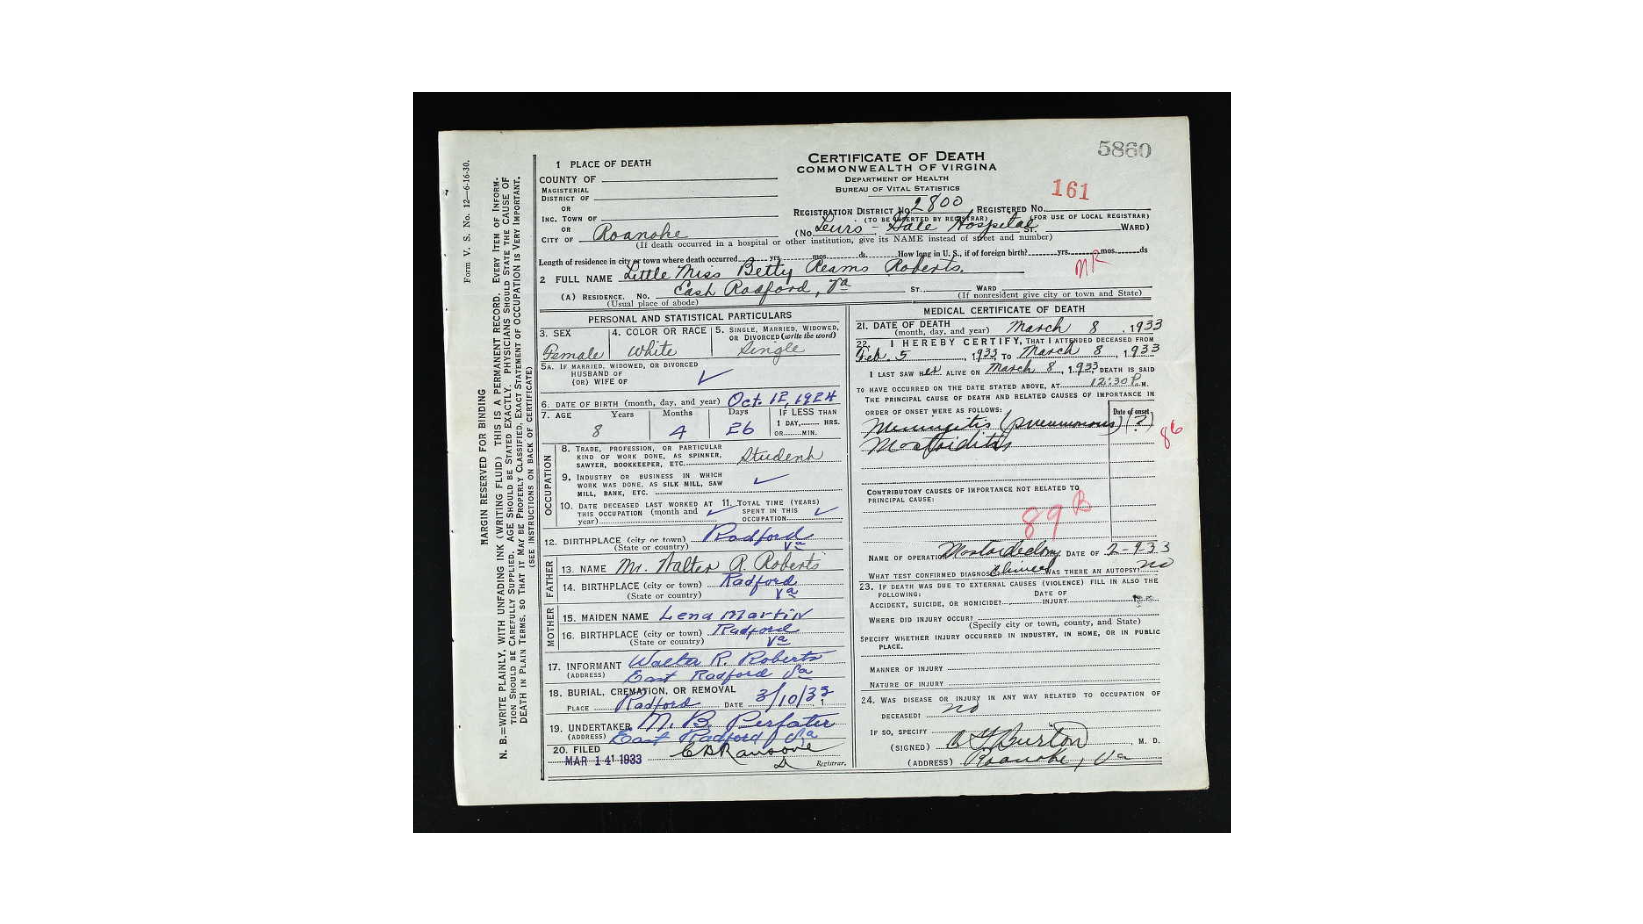 Form V. S. No. 12—6-16-30.
MARGIN RESERVED FOR BINDING
N. B.=WRITE PLAINLY, WITH UNFADING INK (WRITING FLUID) THIS IS A PERMANENT RECORD. EVERY ITEM OF INFORM-
TION SHOULD BE CAREFULLY SUPPLIED. AGE SHOULD BE STATED EXACTLY. PHYSICIANS SHOULD STATE THE CAUSE OF
DEATH IN PLAIN TERMS, SO THAT IT MAY BE PROPERLY CLASSIFIED. EXACT STATEMENT OF OCCUPATION IS VERY IMPORTANT.
(SEE INSTRUCTIONS ON BACK OF CERTIFICATE)
5860
CERTIFICATE OF DEATH
COMMONWEALTH OF VIRGINA
DEPARTMENT OF HEALTH
BUREAU OF VITAL STATISTICS
161
1 PLACE OF DEATH
COUNTY OF
MAGISTERIAL
DISTRICT OF
OR
INC. TOWN OF
OR
CITY OF Roanoke
REGISTRATION DISTRICT NO. 2800 REGISTERED NO.
(TO BE INSERTED BY REGISTRAR) (FOR USE OF LOCAL REGISTRAR)
(No. Hospital ST. WARD)
(If death occurred in a hospital or other institution, give its NAME instead of street and number)
Length of residence in city or town where death occurred yrs. mos. ds. How long in U. S., if of foreign birth? yrs. mos. ds
2 FULL NAME Little Miss Betty Reams Roberts.
(A) RESIDENCE. No. East Radford, Va ST., WARD
(Usual place of abode) (If nonresident give city or town and State)
PERSONAL AND STATISTICAL PARTICULARS
3. SEX Female
4. COLOR OR RACE White
5. SINGLE, MARRIED, WIDOWED, OR DIVORCED (write the word) Single
5A. IF MARRIED, WIDOWED, OR DIVORCED
HUSBAND OF
(OR) WIFE OF
6. DATE OF BIRTH (month, day, and year) Oct. 12, 1924
7. AGE Years Months Days IF LESS THAN
1 DAY, HRS.
OR MIN.
8 4 26
OCCUPATION
8. TRADE, PROFESSION, OR PARTICULAR
KIND OF WORK DONE, AS SPINNER,
SAWYER, BOOKKEEPER, ETC. Student
9. INDUSTRY OR BUSINESS IN WHICH
WORK WAS DONE, AS SILK MILL, SAW
MILL, BANK, ETC.
10. DATE DECEASED LAST WORKED AT
THIS OCCUPATION (month and
year)
11. TOTAL TIME (YEARS)
SPENT IN THIS
OCCUPATION
12. BIRTHPLACE (city or town) Radford
(State or country) Va
FATHER
13. NAME Mr. Walter R. Roberts
14. BIRTHPLACE (city or town) Radford
(State or country) Va
MOTHER
15. MAIDEN NAME Lena Martin
16. BIRTHPLACE (city or town) Radford
(State or country) Va
17. INFORMANT Walter R. Roberts
(ADDRESS) East Radford Va
18. BURIAL, CREMATION, OR REMOVAL
PLACE Radford DATE 3/10/33
19. UNDERTAKER M. B. Perfater
(ADDRESS) East Radford Va
20. FILED
MAR 14 1933
Registrar.
MEDICAL CERTIFICATE OF DEATH
21. DATE OF DEATH
(month, day, and year) March 8, 1933
22. I HEREBY CERTIFY, THAT I ATTENDED DECEASED FROM
Feb. 5, 1933 TO March 8, 1933
I LAST SAW HER ALIVE ON March 8, 1933 DEATH IS SAID
TO HAVE OCCURRED ON THE DATE STATED ABOVE, AT 12:30 P. M.
THE PRINCIPAL CAUSE OF DEATH AND RELATED CAUSES OF IMPORTANCE IN
ORDER OF ONSET WERE AS FOLLOWS: Date of onset
Meningitis (pneumonous) (?)
Mastoiditis
86
CONTRIBUTORY CAUSES OF IMPORTANCE NOT RELATED TO
PRINCIPAL CAUSE:
89 B
NAME OF OPERATION Mastoidectomy DATE OF 2-933
WHAT TEST CONFIRMED DIAGNOSIS Clinical WAS THERE AN AUTOPSY? no
23. IF DEATH WAS DUE TO EXTERNAL CAUSES (VIOLENCE) FILL IN ALSO THE
FOLLOWING:
ACCIDENT, SUICIDE, OR HOMICIDE? DATE OF INJURY
WHERE DID INJURY OCCUR?
(Specify city or town, county, and State)
SPECIFY WHETHER INJURY OCCURRED IN INDUSTRY, IN HOME, OR IN PUBLIC
PLACE.
MANNER OF INJURY
NATURE OF INJURY
24. WAS DISEASE OR INJURY IN ANY WAY RELATED TO OCCUPATION OF
DECEASED? no
IF SO, SPECIFY
(SIGNED) Burton, M. D.
(ADDRESS) Roanoke, Va